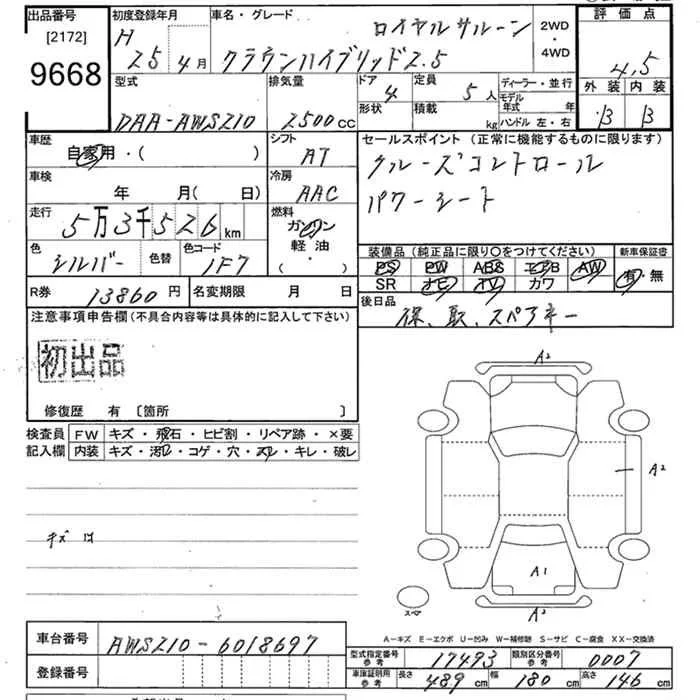 出品番号 初度登録年月 車名・グレード 2WD・4WD 評価点
[2172]
9668
H 25 4月 クラウンハイブリッド2.5 ロイヤルサルーン
4,5
型式 排気量 ドア 4 定員 5人 ディーラー・並行 外装 内装
DAA-AWS210 2500cc 形状 積載 kg モデル年式 年 B B
ハンドル 左・右
車歴 自家用・( ) シフト AT セールスポイント(正常に機能するものに限ります)
クルーズコントロール
車検 年 月(日) 冷房 AAC パワーシート
走行 5万3千526km 燃料 ガソリン
軽油・
( ・ )
色 シルバー 色替 色コード 1F7
装備品(純正品に限り○をつけてください) 新車保証書
PS PW ABS エアB AW 有・無
SR ナビ TV カワ
R券 13860円 名変期限 月 日 後日品
保、取、スペアキー
注意事項申告欄(不具合内容等は具体的に記入して下さい)
初出品
修復歴 有 〔箇所 〕
検査員 FW キズ・飛石・ヒビ割・リペア跡・×要
記入欄 内装 キズ・汚れ・コゲ・穴・スレ・キレ・破レ
A2
A2
キズ
A1
スペア A2
A-キズ E-エクボ U-凹み W-補修跡 S-サビ C-腐食 XX-交換済
車台番号 AWS210-6018697
型式指定番号 参考 17493 類別区分番号 参考 0007
登録番号 車庫証明用 参考 長さ 489cm 幅 180cm 高さ 146cm